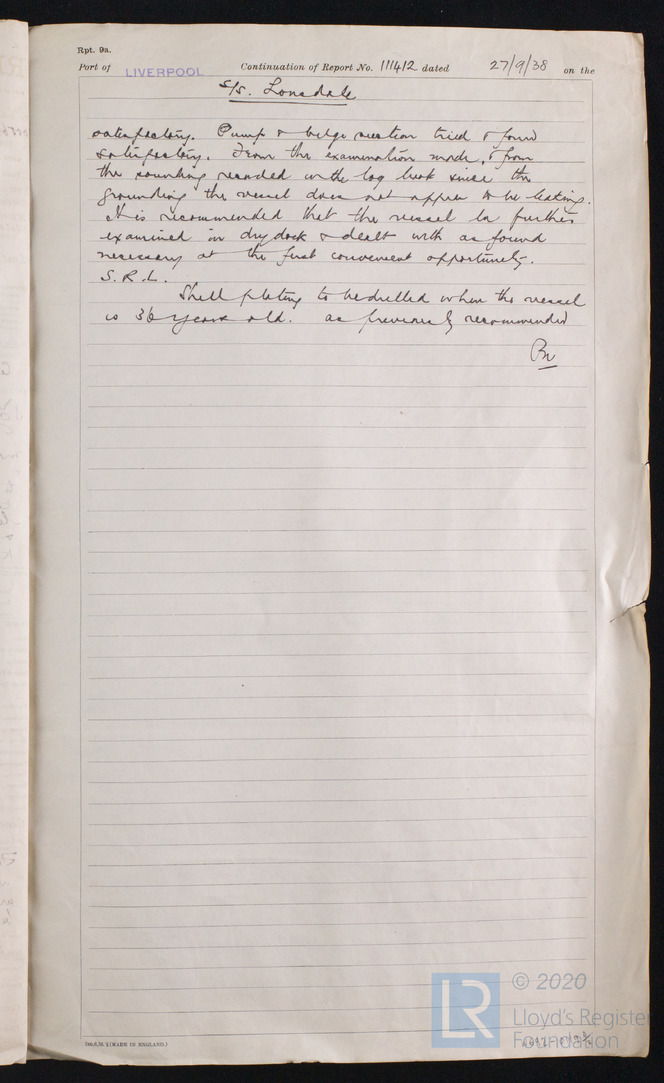 Rpt. 9a.
Port of LIVERPOOL Continuation of Report No. 111412 dated 27/9/38 on the
S/S. Lonsdale
satisfactory. Pump & bilge suction tried & found
satisfactory. From the examination made, & from
the sounding recorded in the log book since the
grounding the vessel does not appear to be leaking.
It is recommended that the vessel be further
examined in dry dock & dealt with as found
necessary at the first convenient opportunity.
S. R. L.
Shell plating to be drilled when the vessel
is 36 years old. as previously recommended
(MADE IN ENGLAND.)
LR
© 2020
Lloyd's Register
Foundation